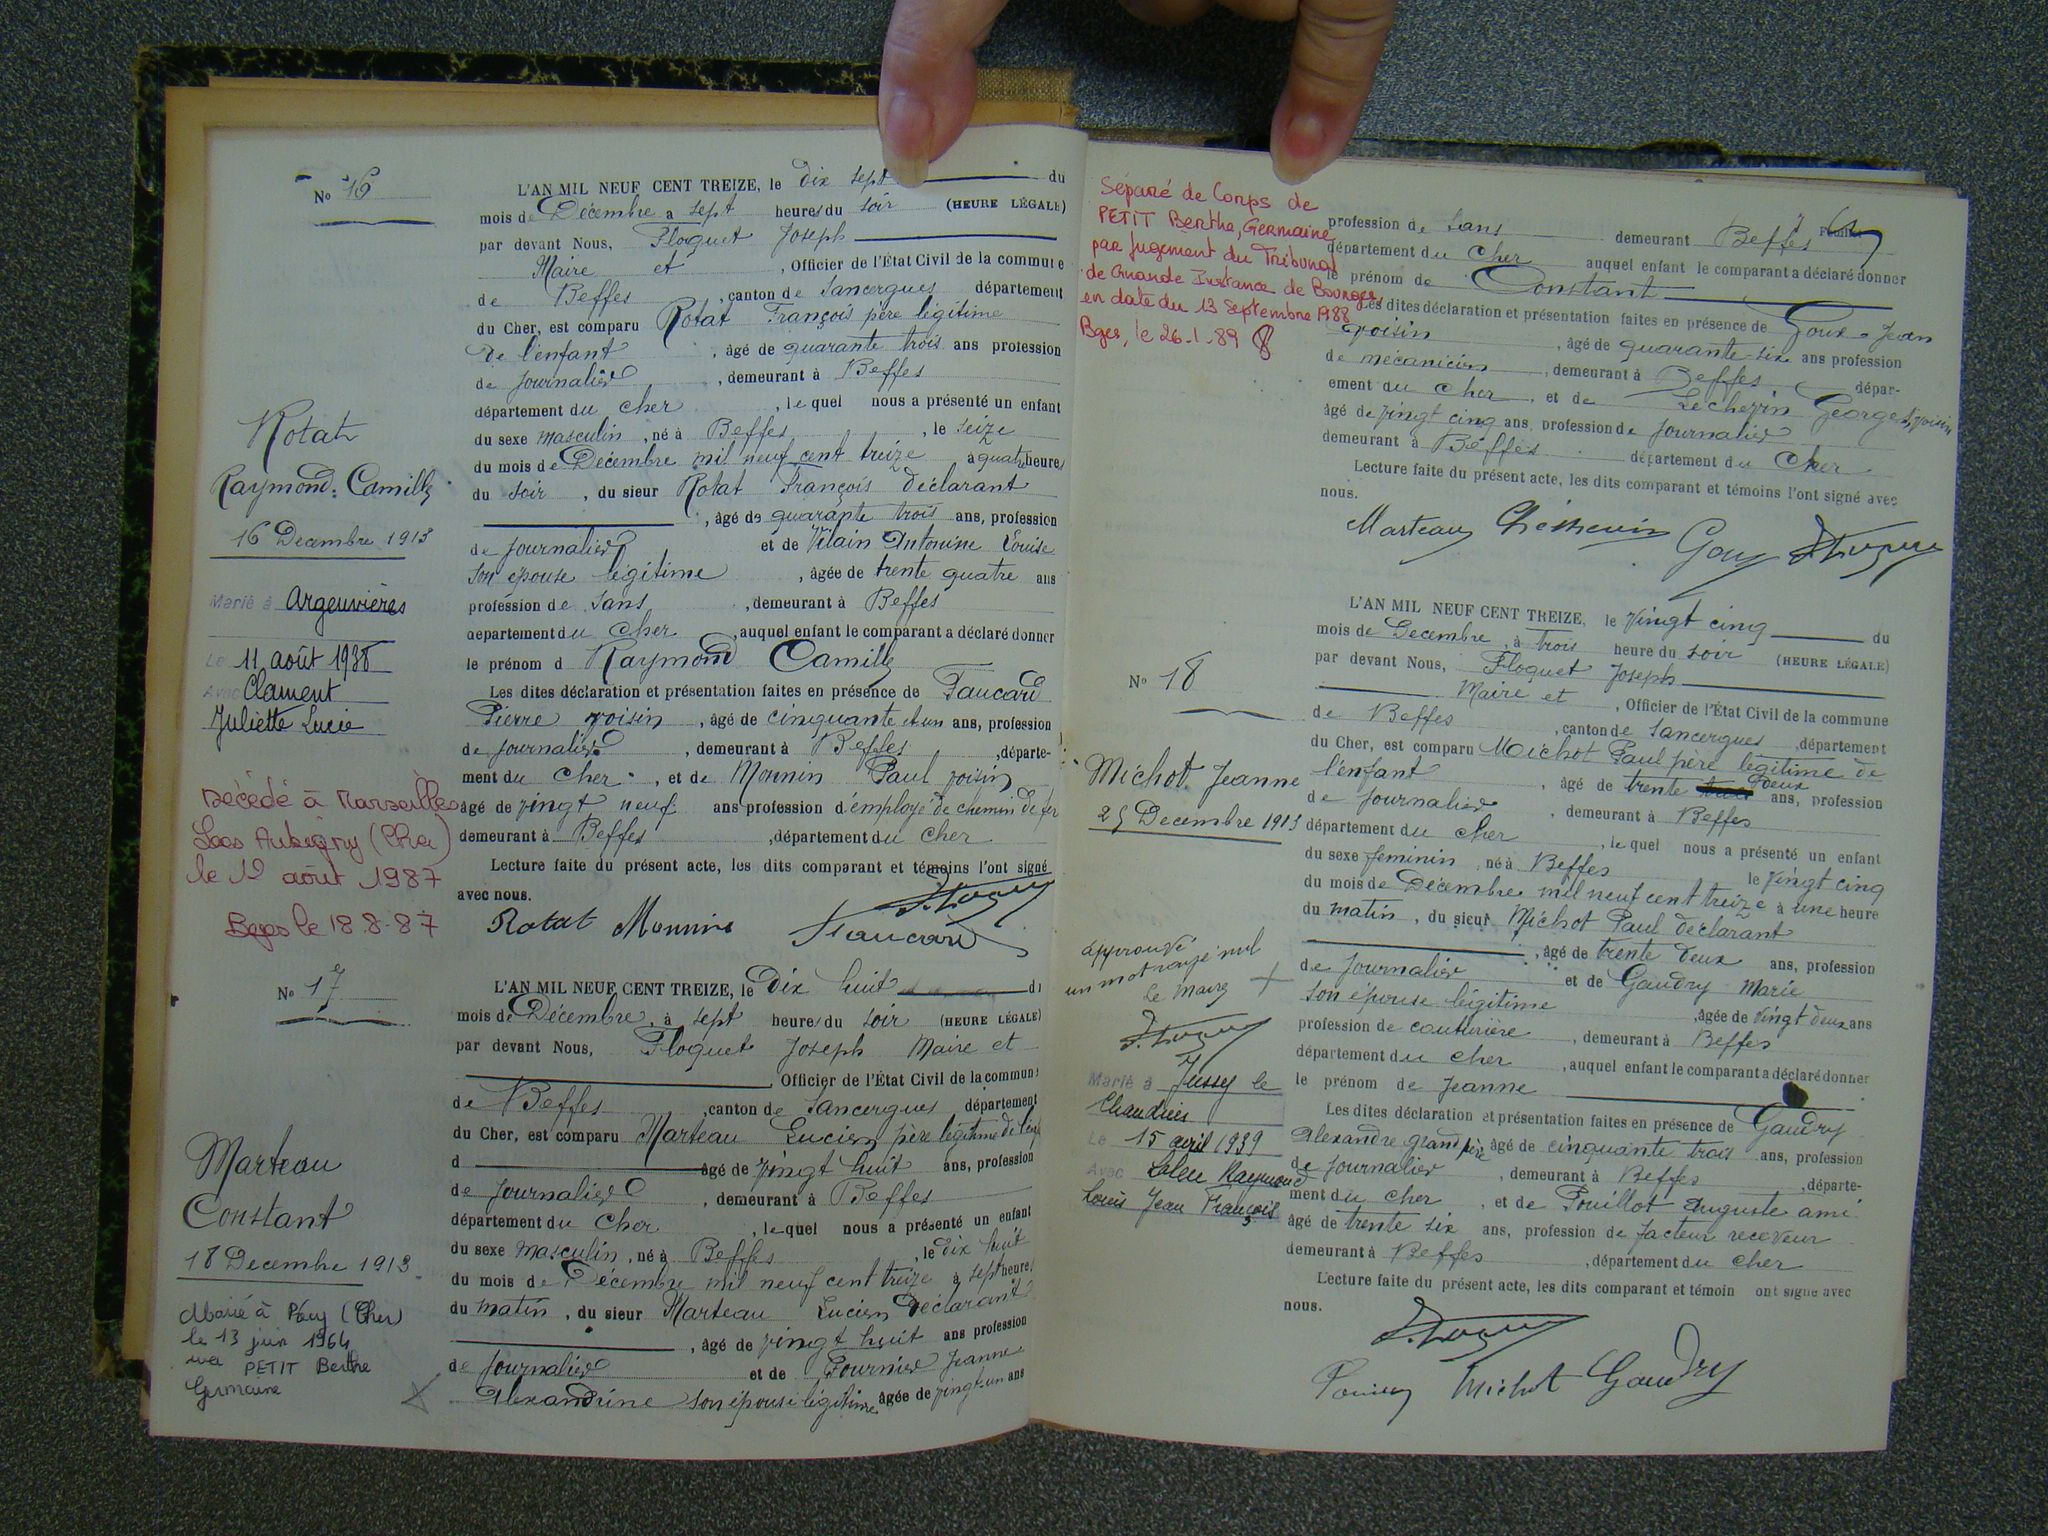 No 16
Rotat
Raymond Camille
16 Decembre 1913
Marié à Argenvières
Le 11 août 1938
Avec Clament
Juliette Lucie
Décédé à Marseilles
Les Aubigny (Cher)
le 19 août 1987
Bges le 18.8.87
L'AN MIL NEUF CENT TREIZE, le dix sept du
mois de Décembre a sept heures du soir (HEURE LÉGALE)
par devant Nous, Floquet Joseph
Maire et , Officier de l'État Civil de la commune
de Beffes , canton de Sancergues département
du Cher, est comparu Rotat François père légitime
de l'enfant , âgé de quarante trois ans profession
de journalier , demeurant à Beffes
département du cher , le quel nous a présenté un enfant
du sexe masculin , né à Beffes , le seize
du mois de Décembre mil neuf cent treize a quatre heures
du soir , du sieur Rotat François déclarant
, âgé de quarante trois ans, profession
de journalier et de Vilain Antonine Louise
son épouse légitime , âgée de trente quatre ans
profession de sans , demeurant à Beffes
département du Cher , auquel enfant le comparant a déclaré donner
le prénom d Raymond Camille
Les dites déclaration et présentation faites en présence de Faucard
Pierre voisin , âgé de cinquante et un ans, profession
de journalier , demeurant à Beffes , départe-
ment du cher , et de Monnin Paul voisin
âgé de vingt neuf ans profession d'employé de chemin de fer
demeurant à Beffes , département du cher
Lecture faite du présent acte, les dits comparant et témoins l'ont signé
avec nous.
Rotat Monnin Faucard
No 17
Marteau
Constant
18 Decembre 1913
Marié à (Cher)
le 13 juin 1964
avec PETIT Berthe
Germaine
L'AN MIL NEUF CENT TREIZE, le Dix huit du
mois de Décembre, à sept heures du soir (HEURE LÉGALE)
par devant Nous, Floquet Joseph Maire et
Officier de l'État Civil de la commune
de Beffes , canton de Sancergues département
du Cher, est comparu Marteau Lucien père légitime de l'enfant
d âgé de vingt huit ans, profession
de journalier , demeurant à Beffes
département du Cher , le quel nous a présenté un enfant
du sexe masculin , né à Beffes , le dix huit
du mois de Décembre mil neuf cent treize à sept heures
du matin , du sieur Marteau Lucien Déclarant
, âgé de vingt huit ans profession
de journalier et de Fournier Jeanne
Alexandrine son épouse légitime âgée de vingt-un ans
Séparé de Corps de
PETIT Berthe, Germaine
par jugement du Tribunal
de Grande Instance de Bourges
en date du 13 Septembre 1988
Bges, le 26.1.89
profession de sans demeurant Beffes
département du Cher auquel enfant le comparant a déclaré donner
le prénom de Constant
Les dites déclaration et présentation faites en présence de Goux Jean
voisin , âgé de quarante six ans profession
de mécanicien , demeurant à Beffes , dépar-
ement du cher , et de Lechevin Georges, voisin
âgé de vingt cinq ans, profession de journalier
demeurant à Beffes département du Cher
Lecture faite du présent acte, les dits comparant et témoins l'ont signé avec
nous.
Marteau
No 18
Michot Jeanne
25 Decembre 1913
approuvé
un mot rayé nul
Le Maire
Marié à Jussy le
Chaudrier
Le 15 avril 1939
Avec Raymond
Louis Jean François
L'AN MIL NEUF CENT TREIZE, le Vingt cinq du
mois de Decembre , à trois heure du soir (HEURE LÉGALE)
par devant Nous, Floquet Joseph
Maire et , Officier de l'État Civil de la commune
de Beffes , canton de Sancergues , département
du Cher, est comparu Michot Paul père légitime de
l'enfant , âgé de trente deux ans, profession
de journalier , demeurant à Beffes
département du cher , le quel nous a présenté un enfant
du sexe feminin , né à Beffes le vingt cinq
du mois de Décembre mil neuf cent treize à une heure
du matin , du sieur Michot Paul déclarant
, âgé de trente deux ans, profession
de journalier et de Gaudry Marie
son épouse légitime , âgée de vingt deux ans
profession de couturière , demeurant à Beffes
département du cher , auquel enfant le comparant a déclaré donner
le prénom de Jeanne
Les dites déclaration et présentation faites en présence de Gaudry
Alexandre grand père âgé de cinquante trois ans, profession
de journalier , demeurant à Beffes , départe-
ment du cher , et de Pouillot Auguste ami
âgé de trente six ans, profession de facteur receveur
demeurant à Beffes , département du cher
Lecture faite du présent acte, les dits comparant et témoin ont signé avec
nous.
Michot Gaudry